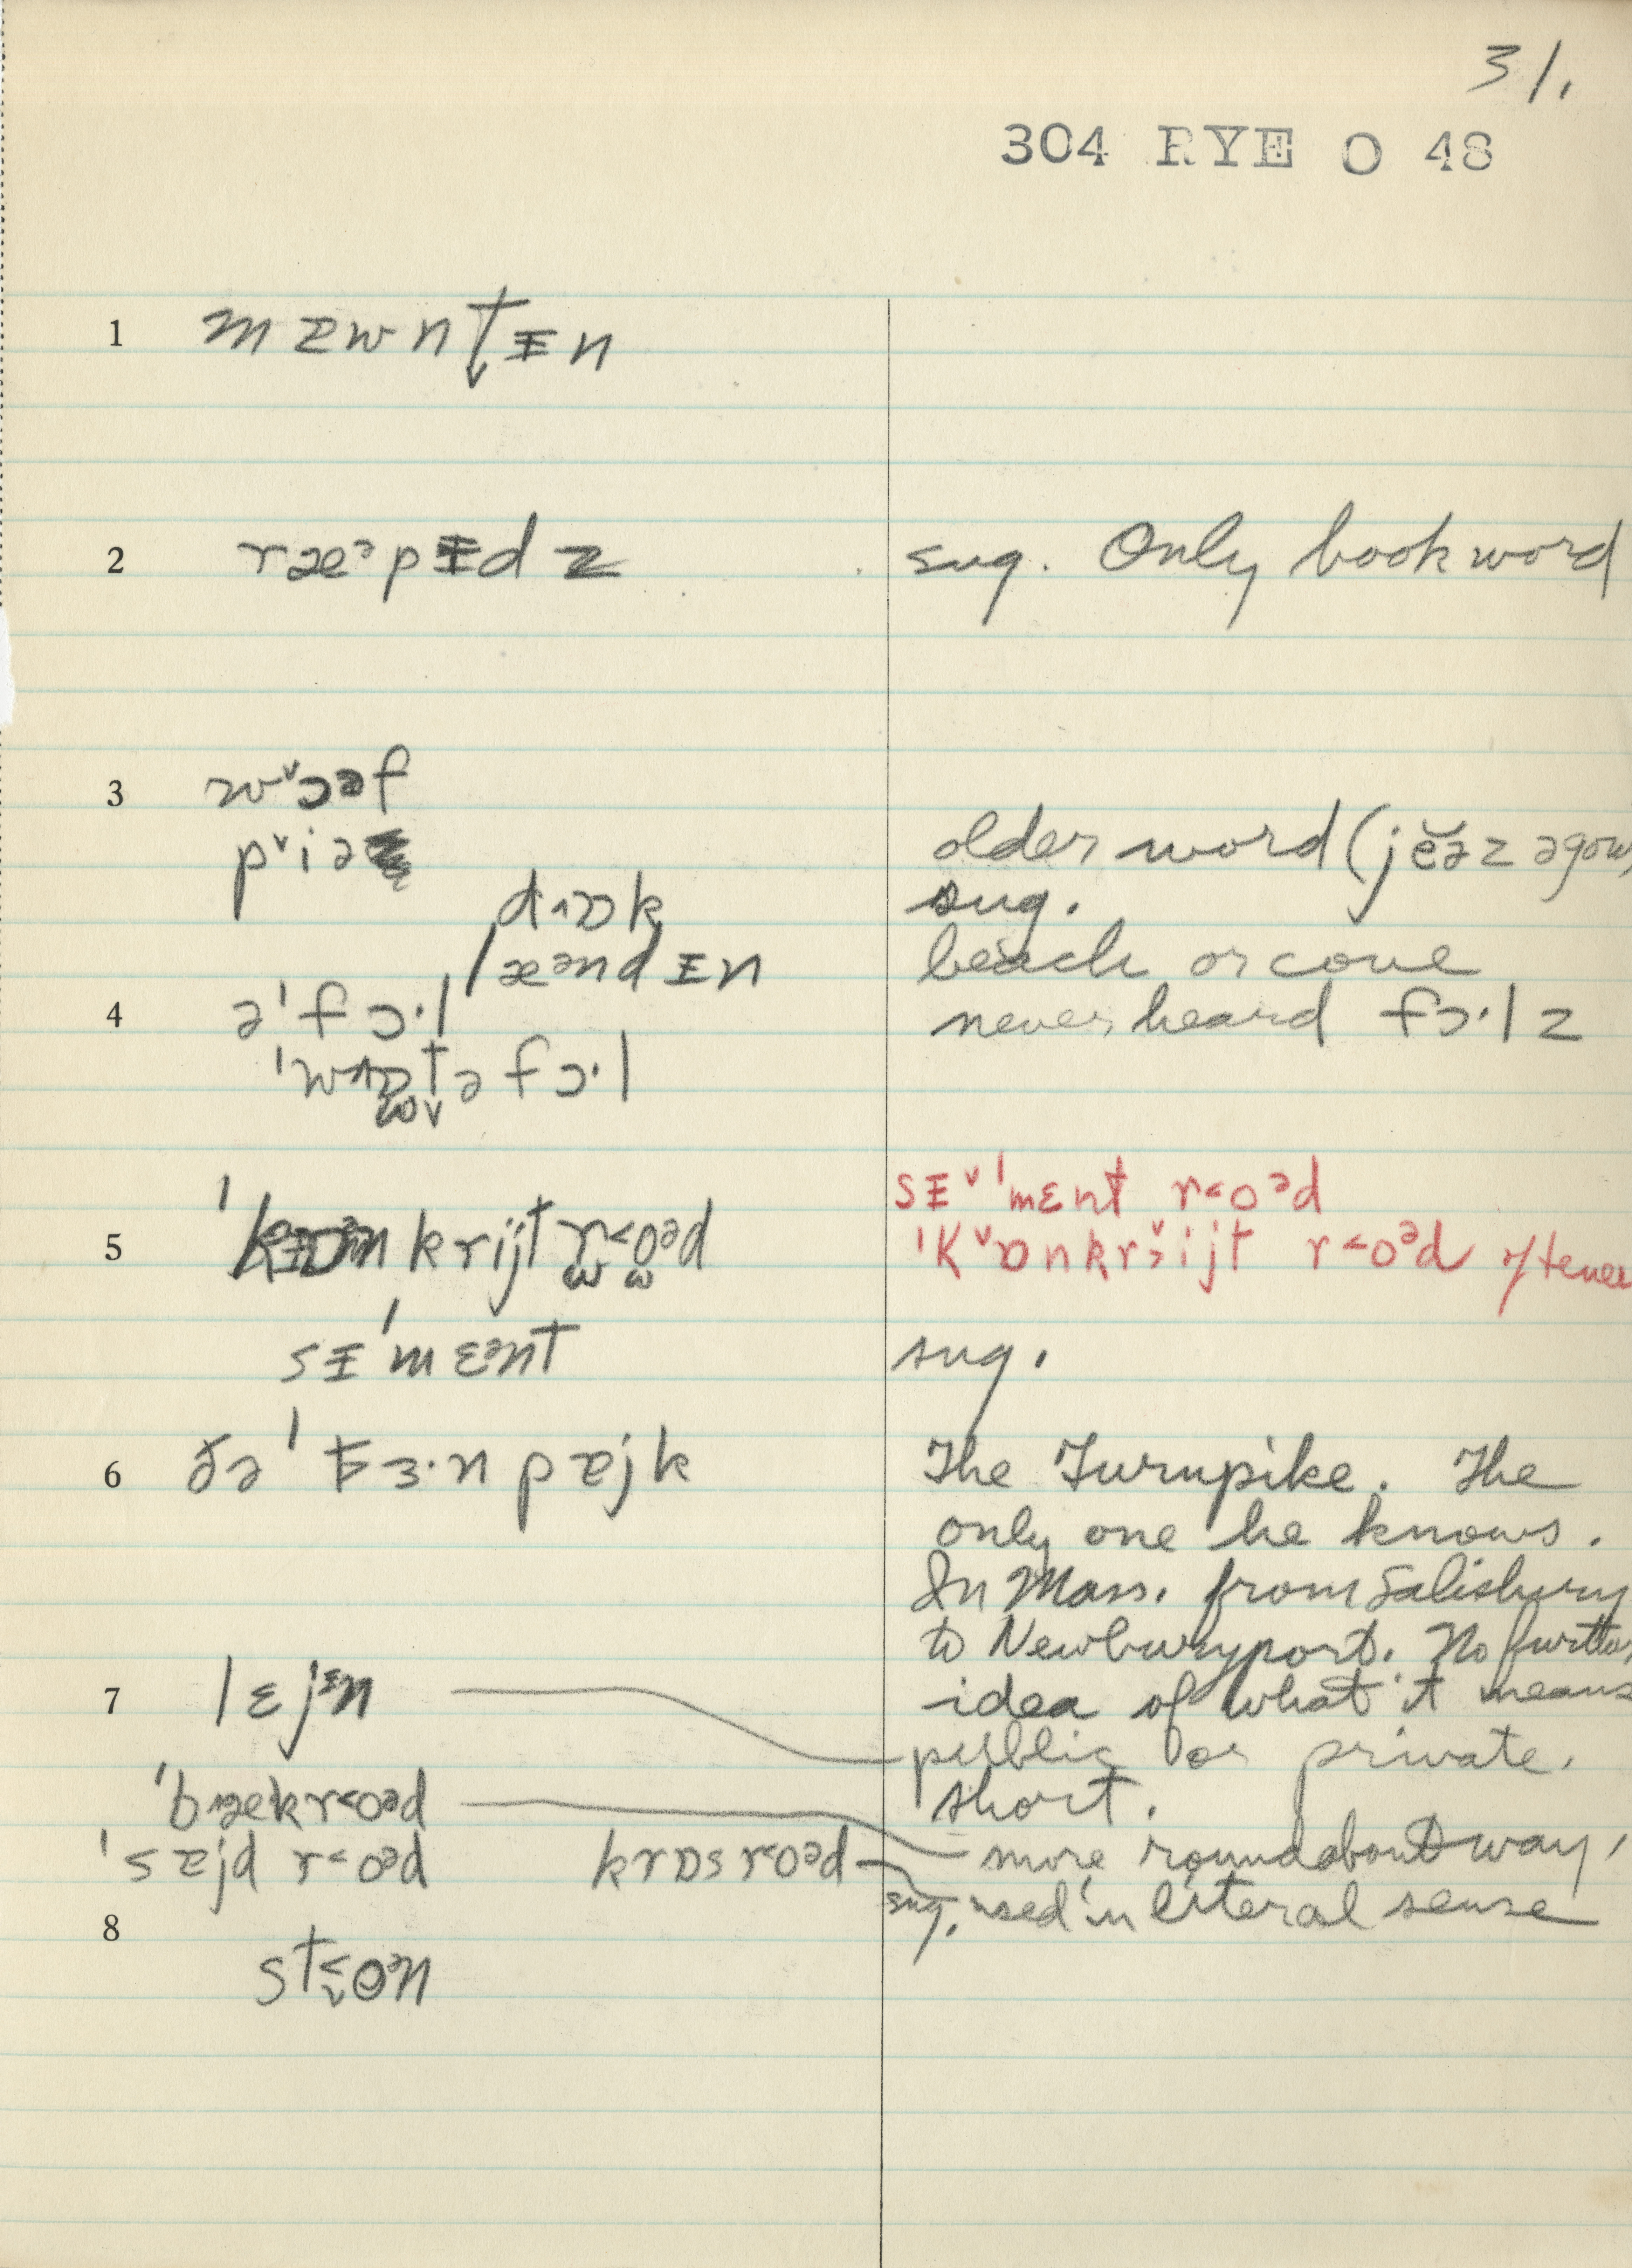 31.
304 RYE O 48
1 mɐwnt̬ᵻn
2 ræᵊpᵻdz sug. Only book word
3 wˇɔəf
pˇiə older word (jĕə̆z əgow)
dɒk sug.
læᵊndᵻn beach or cove
4 ə'fɔ·l never heard fɔ·lz
'wɒtəfɔ·l
sᵻˇ'mɛnt r˂oᵊd
5 krijt r˂oᵊd 'kˇɒnkrijt r˂oᵊd oftener
sᵻ'mɛᵊnt sug.
6 ðə 'tɜ·npɐjk The Turnpike. The
only one he knows.
In Mass. from Salisbury
to Newburyport. No further
7 lɛjᵻn idea of what it means
public or private.
'bækr˂oᵊd short.
'sɐjd r˂oᵊd krɒsr˂oᵊd more roundabout way,
sug. used in literal sense
8
st˂oᵊn